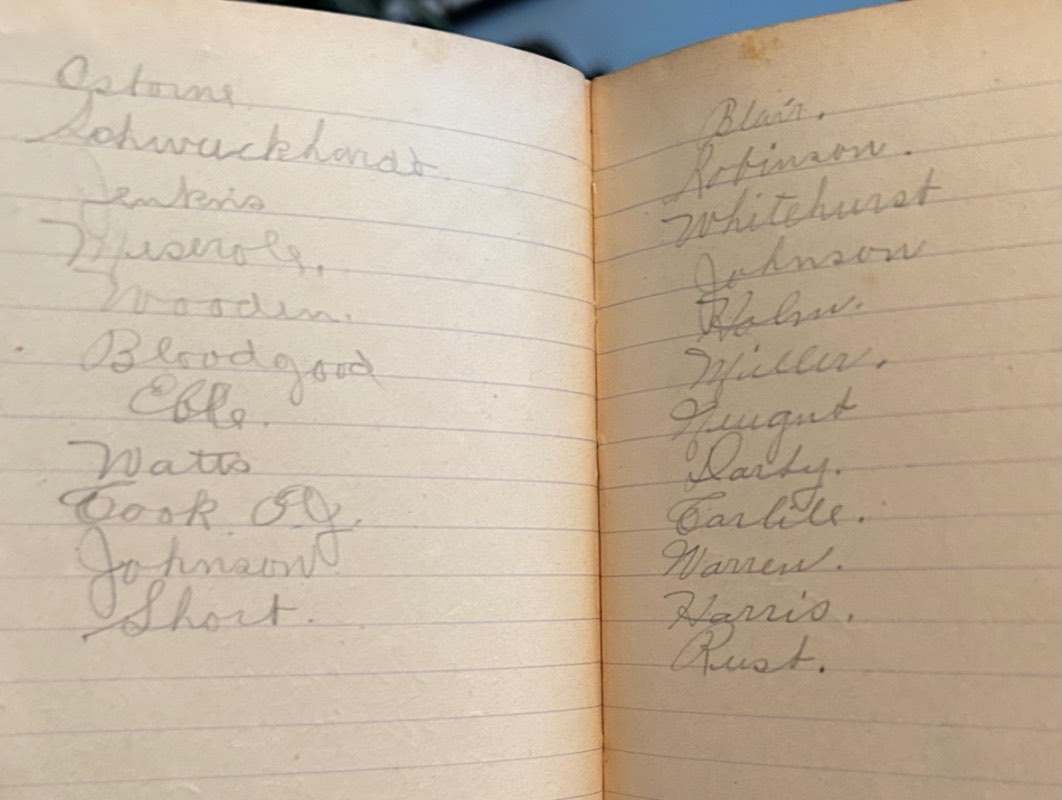 Osborne
Schwuckhardt.
Jenkins
Miserole,
Wooden.
Bloodgood
Eble.
Watts
Cook. OJ.
Johnson
Short.
Blair.
Robinson.
Whitehurst
Johnson
Holm.
Miller.
Neugnt
Darby.
Carlile.
Warren.
Harris.
Rust.